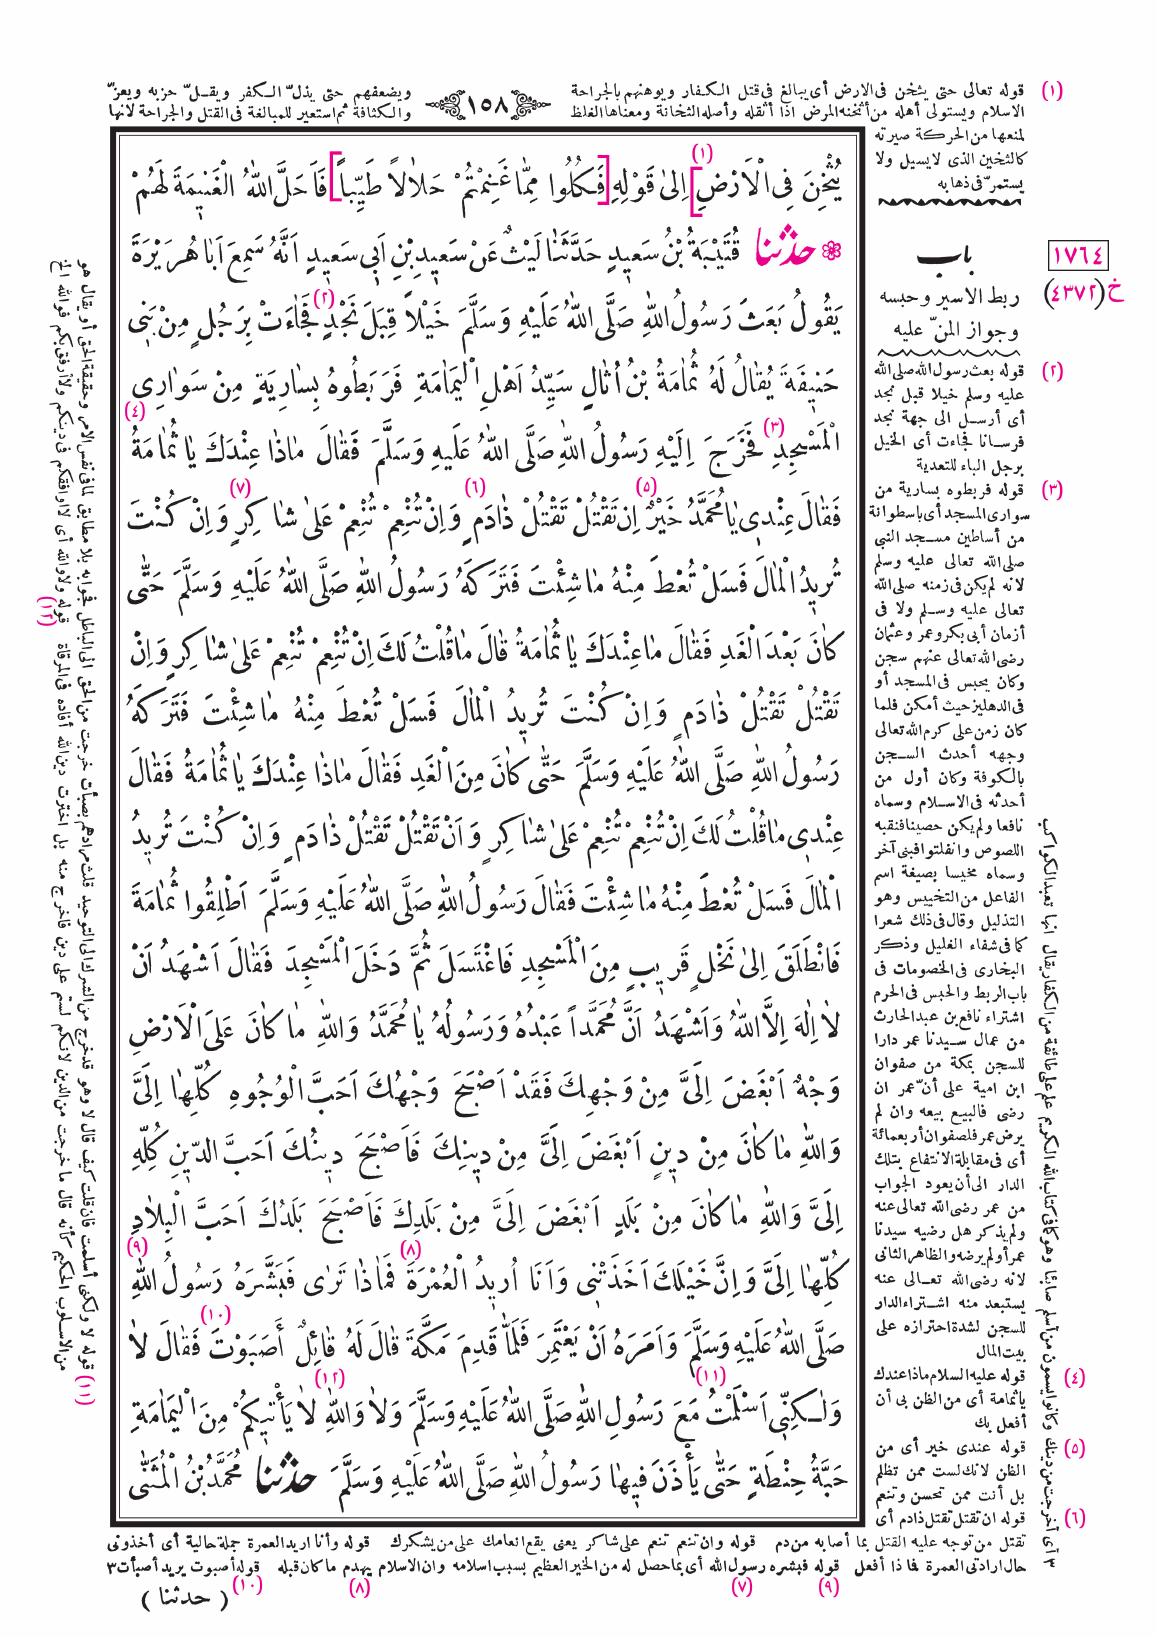 ١٥٨
(١) قوله تعالى حتى يثخن فى الارض أى يبالغ فى قتل الكفار ويوهنهم بالجراحة
ويضعفهم حتى يذلّ الكفر ويقلّ حزبه ويعزّ
الاسلام ويستولى أهله من أثخنه المرض اذا أثقله وأصله الثخانة ومعناها الغلظ
والكثافة ثم استعير للمبالغة فى القتل والجراحة لانها
لمنعها من الحركة صيرته
كالثخين الذى لا يسيل ولا
يستمرّ فى ذهابه
(١)
يُثْخِنَ فِى الْاَرْضِ] اِلىٰ قَوْلِهِ [فَكُلُوا مِمّٰا غَنِمْتُمْ حَلاٰلاً طَيِّباً] فَاَحَلَّ اللّٰهُ الْغَنِيمَةَ لَهُمْ
❀ حدثنا قُتَيْبَةُ بْنُ سَعِيدٍ حَدَّثَنٰا لَيْثٌ عَنْ سَعِيدِ بْنِ اَبِى سَعِيدٍ اَنَّهُ سَمِعَ اَبٰا هُرَيْرَةَ
(٢)
يَقُولُ بَعَثَ رَسُولُ اللّٰهِ صَلَّى اللّٰهُ عَلَيْهِ وَسَلَّمَ خَيْلاً قِبَلَ نَجْدٍ فَجٰاءَتْ بِرَجُلٍ مِنْ بَنِى
حَنِيفَةَ يُقٰالُ لَهُ ثُمٰامَةُ بْنُ اُثٰالٍ سَيِّدُ اَهْلِ الْيَمٰامَةِ فَرَبَطُوهُ بِسٰارِيَةٍ مِنْ سَوٰارِى
(٣) (٤)
الْمَسْجِدِ فَخَرَجَ اِلَيْهِ رَسُولُ اللّٰهِ صَلَّى اللّٰهُ عَلَيْهِ وَسَلَّمَ فَقٰالَ مٰاذٰا عِنْدَكَ يٰا ثُمٰامَةُ
(٥) (٦) (٧)
فَقٰالَ عِنْدِى يٰا مُحَمَّدُ خَيْرٌ اِنْ تَقْتُلْ تَقْتُلْ ذٰا دَمٍ وَاِنْ تُنْعِمْ تُنْعِمْ عَلىٰ شٰاكِرٍ وَاِنْ كُنْتَ
تُرِيدُ الْمٰالَ فَسَلْ تُعْطَ مِنْهُ مٰا شِئْتَ فَتَرَكَهُ رَسُولُ اللّٰهِ صَلَّى اللّٰهُ عَلَيْهِ وَسَلَّمَ حَتّٰى
كٰانَ بَعْدَ الْغَدِ فَقٰالَ مٰا عِنْدَكَ يٰا ثُمٰامَةُ قٰالَ مٰا قُلْتُ لَكَ اِنْ تُنْعِمْ تُنْعِمْ عَلىٰ شٰاكِرٍ وَاِنْ
تَقْتُلْ تَقْتُلْ ذٰا دَمٍ وَاِنْ كُنْتَ تُرِيدُ الْمٰالَ فَسَلْ تُعْطَ مِنْهُ مٰا شِئْتَ فَتَرَكَهُ
رَسُولُ اللّٰهِ صَلَّى اللّٰهُ عَلَيْهِ وَسَلَّمَ حَتّٰى كٰانَ مِنَ الْغَدِ فَقٰالَ مٰاذٰا عِنْدَكَ يٰا ثُمٰامَةُ فَقٰالَ
عِنْدِى مٰا قُلْتُ لَكَ اِنْ تُنْعِمْ تُنْعِمْ عَلىٰ شٰاكِرٍ وَاَنْ تَقْتُلْ تَقْتُلْ ذٰا دَمٍ وَاِنْ كُنْتَ تُرِيدُ
الْمٰالَ فَسَلْ تُعْطَ مِنْهُ مٰا شِئْتَ فَقٰالَ رَسُولُ اللّٰهِ صَلَّى اللّٰهُ عَلَيْهِ وَسَلَّمَ اَطْلِقُوا ثُمٰامَةَ
فَانْطَلَقَ اِلىٰ نَخْلٍ قَرِيبٍ مِنَ الْمَسْجِدِ فَاغْتَسَلَ ثُمَّ دَخَلَ الْمَسْجِدَ فَقٰالَ اَشْهَدُ اَنْ
لاٰ اِلٰهَ اِلاَّ اللّٰهُ وَاَشْهَدُ اَنَّ مُحَمَّداً عَبْدُهُ وَرَسُولُهُ يٰا مُحَمَّدُ وَاللّٰهِ مٰا كٰانَ عَلَى الْاَرْضِ
وَجْهٌ اَبْغَضَ اِلَىَّ مِنْ وَجْهِكَ فَقَدْ اَصْبَحَ وَجْهُكَ اَحَبَّ الْوُجُوهِ كُلِّهٰا اِلَىَّ
وَاللّٰهِ مٰا كٰانَ مِنْ دِينٍ اَبْغَضَ اِلَىَّ مِنْ دِينِكَ فَاَصْبَحَ دِينُكَ اَحَبَّ الدِّينِ كُلِّهِ
اِلَىَّ وَاللّٰهِ مٰا كٰانَ مِنْ بَلَدٍ اَبْغَضَ اِلَىَّ مِنْ بَلَدِكَ فَاَصْبَحَ بَلَدُكَ اَحَبَّ الْبِلاٰدِ
(٨) (٩)
كُلِّهٰا اِلَىَّ وَاِنَّ خَيْلَكَ اَخَذَتْنِى وَاَنَا اُرِيدُ الْعُمْرَةَ فَمٰاذٰا تَرٰى فَبَشَّرَهُ رَسُولُ اللّٰهِ
(١٠)
صَلَّى اللّٰهُ عَلَيْهِ وَسَلَّمَ وَاَمَرَهُ اَنْ يَعْتَمِرَ فَلَمّٰا قَدِمَ مَكَّةَ قٰالَ لَهُ قٰائِلٌ أَصَبَوْتَ فَقٰالَ لاٰ
(١١) (١٢)
وَلٰكِنِّى اَسْلَمْتُ مَعَ رَسُولِ اللّٰهِ صَلَّى اللّٰهُ عَلَيْهِ وَسَلَّمَ وَلاٰ وَاللّٰهِ لاٰ يَأْتِيكُمْ مِنَ الْيَمٰامَةِ
حَبَّةُ حِنْطَةٍ حَتّٰى يَأْذَنَ فِيهٰا رَسُولُ اللّٰهِ صَلَّى اللّٰهُ عَلَيْهِ وَسَلَّمَ حدثنا مُحَمَّدُ بْنُ الْمُثَنّٰى
١٧٦٤
خ (٤٣٧٢)
باب
ربط الاسير وحبسه
وجواز المنّ عليه
(٢) قوله بعث رسول الله صلى الله
عليه وسلم خيلا قبل نجد
أى أرسل الى جهة نجد
فرسانا فجاءت أى الخيل
برجل الباء للتعدية
(٣) قوله فربطوه بسارية من
سوارى المسجد أى باسطوانة
من أساطين مسجد النبى
صلى الله تعالى عليه وسلم
لانه لم يكن فى زمنه صلى الله
تعالى عليه وسلم ولا فى
أزمان أبى بكر وعمر وعثمان
رضى الله تعالى عنهم سجن
وكان يحبس فى المسجد أو
فى الدهليز حيث أمكن فلما
كان زمن على كرم الله تعالى
وجهه أحدث السجن
بالكوفة وكان أول من
أحدثه فى الاسلام وسماه
نافعا ولم يكن حصينا فنقبه
اللصوص وانفلتوا فبنى آخر
وسماه مخيسا بصيغة اسم
الفاعل من التخييس وهو
التذليل وقال فى ذلك شعرا
كما فى شفاء الغليل وذكر
البخارى فى الخصومات فى
باب الربط والحبس فى الحرم
اشتراء نافع بن عبد الحارث
من عمال سيدنا عمر دارا
للسجن بمكة من صفوان
ابن امية على أنّ عمر ان
رضى فالبيع بيعه وان لم
يرض عمر فلصفوان أربعمائة
أى فى مقابلة الانتفاع بتلك
الدار الى أن يعود الجواب
من عمر رضى الله تعالى عنه
ولم يذكر هل رضيه سيدنا
عمر أو لم يرضه والظاهر الثانى
لانه رضى الله تعالى عنه
يستبعد منه اشتراء الدار
للسجن لشدة احترازه على
بيت المال
(٤) قوله عليه السلام ماذا عندك
يا ثمامة أى من الظن بى أن
أفعل بك
(٥) قوله عندى خير أى من
الظن لانك لست ممن تظلم
بل أنت ممن تحسن وتنعم
(٦) قوله ان تقتل تقتل ذا دم أى
تقتل من توجه عليه القتل بما أصابه من دم قوله وان تنعم تنعم على شاكر يعنى يقع انعامك على من يشكرك قوله وأنا اريد العمرة جملة حالية أى أخذونى
حال ارادتى العمرة فما ذا أفعل قوله فبشره رسول الله أى بما حصل له من الخير العظيم بسبب اسلامه وان الاسلام يهدم ما كان قبله قوله أصبوت يريد أصبأت ٣
(٩) (٧) (٨) (١٠)
( حدثنا )
٣ أى أخرجت من دينك وكانوا يسمون من أسلم صابئا وهو كما فى كتاب الله الكريم علم على طائفة من الكفار يقال انها تعبد الكواكب
(١١) قوله لا ولكنى أسلمت فان قلت كيف قال لا وهو قد خرج من الشرك الى التوحيد قلت مرادهم بصبأت خرجت من الحق الى الباطل فجوابه بلا مطابق لما فى نفس الامر وحقيقة الحق أو يقال هو
من الاسلوب الحكيم كأنه قال ما خرجت من الدين لانكم لستم على دين فاخرج منه بل احدثت دين الله أفاده فى المرقاة (١٢) قوله ولا والله أى لا اوافقكم فى دينكم ولا أرفق بكم فوالله الخ